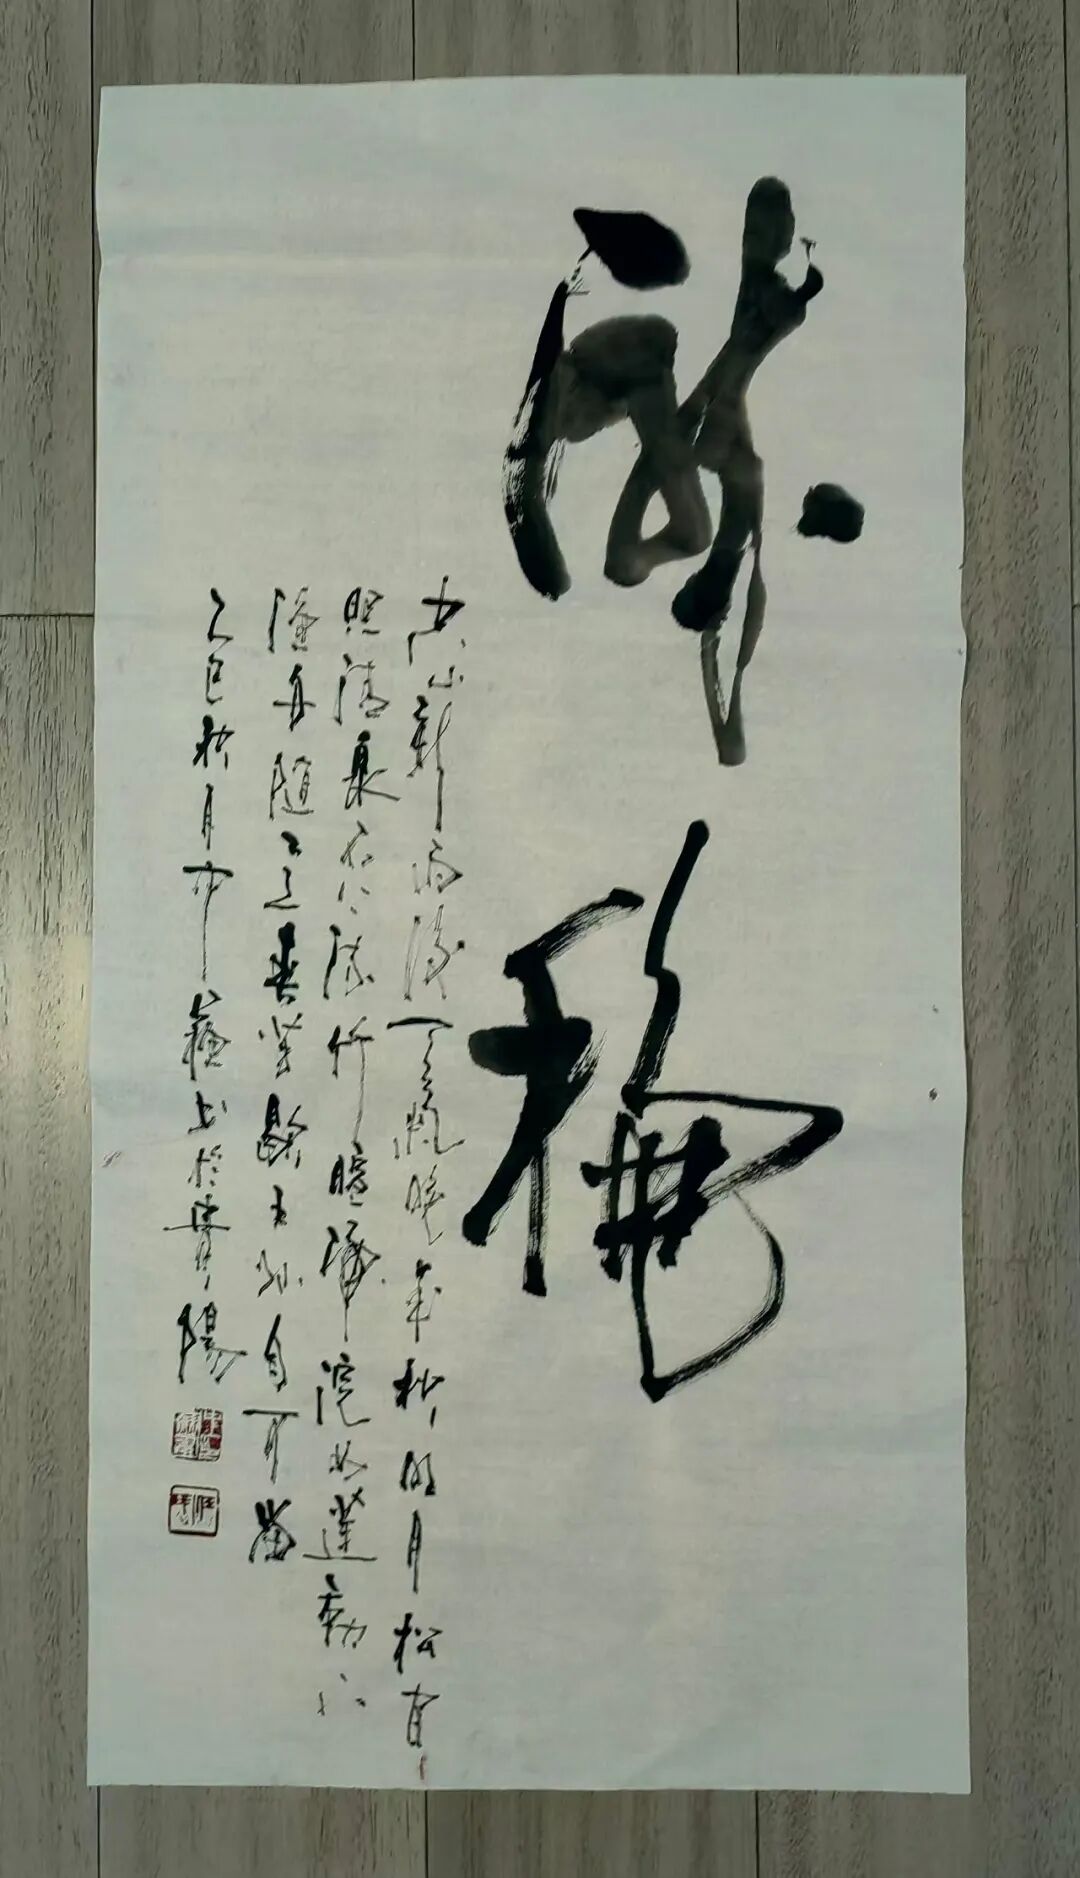 空山新雨後天氣晚来秋明月松间
照清泉石上流竹喧歸浣女蓮動下
漁舟隨意春芳歇王孫自可留
乙巳秋月書於貴陽